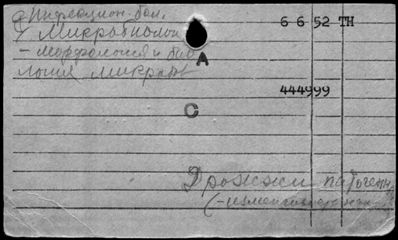 Инфекцион. бол.
6 6 52 TH
Микробиолог
- морфология и био
логия микроб
A
444999
C
Дрожжи патоген
(-изменчивость